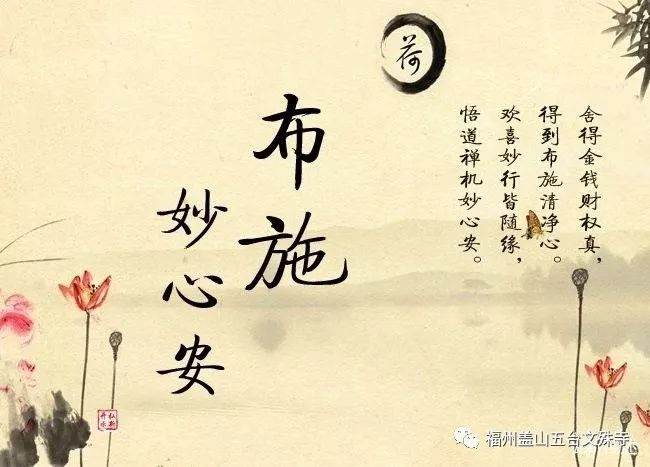 荷
布施
妙心安
舍得金钱财权真，
得到布施清净心。
欢喜妙行皆随缘，
悟道禅机妙心安。
福州盖山五台文殊寺